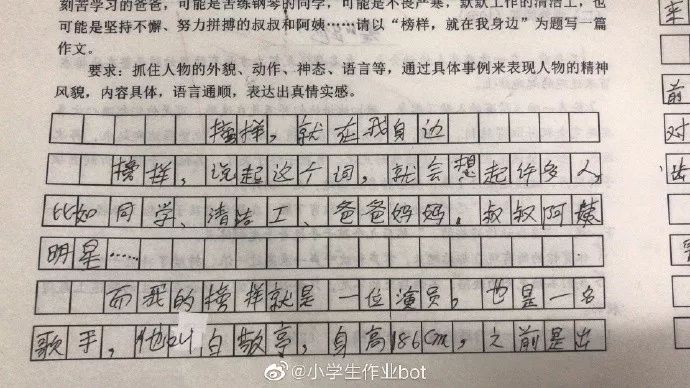 刻苦学习的爸爸，可能是苦练钢琴的同学，可能是不畏严寒，默默工作的清洁工，也
可能是坚持不懈、努力拼搏的叔叔和阿姨……请以“榜样，就在我身边”为题写一篇
作文。
要求：抓住人物的外貌、动作、神态、语言等，通过具体事例来表现人物的精神
风貌，内容具体，语言通顺，表达出真情实感。
榜样，就在我身边
榜样，说起这个词，就会想起许多人，
比如同学、清洁工、爸爸妈妈，叔叔阿姨
明星……
而我的榜样就是一位演员，也是一名
歌手，他叫白敬亭，身高186cm，之前是出
来
前
对
@小学生作业bot